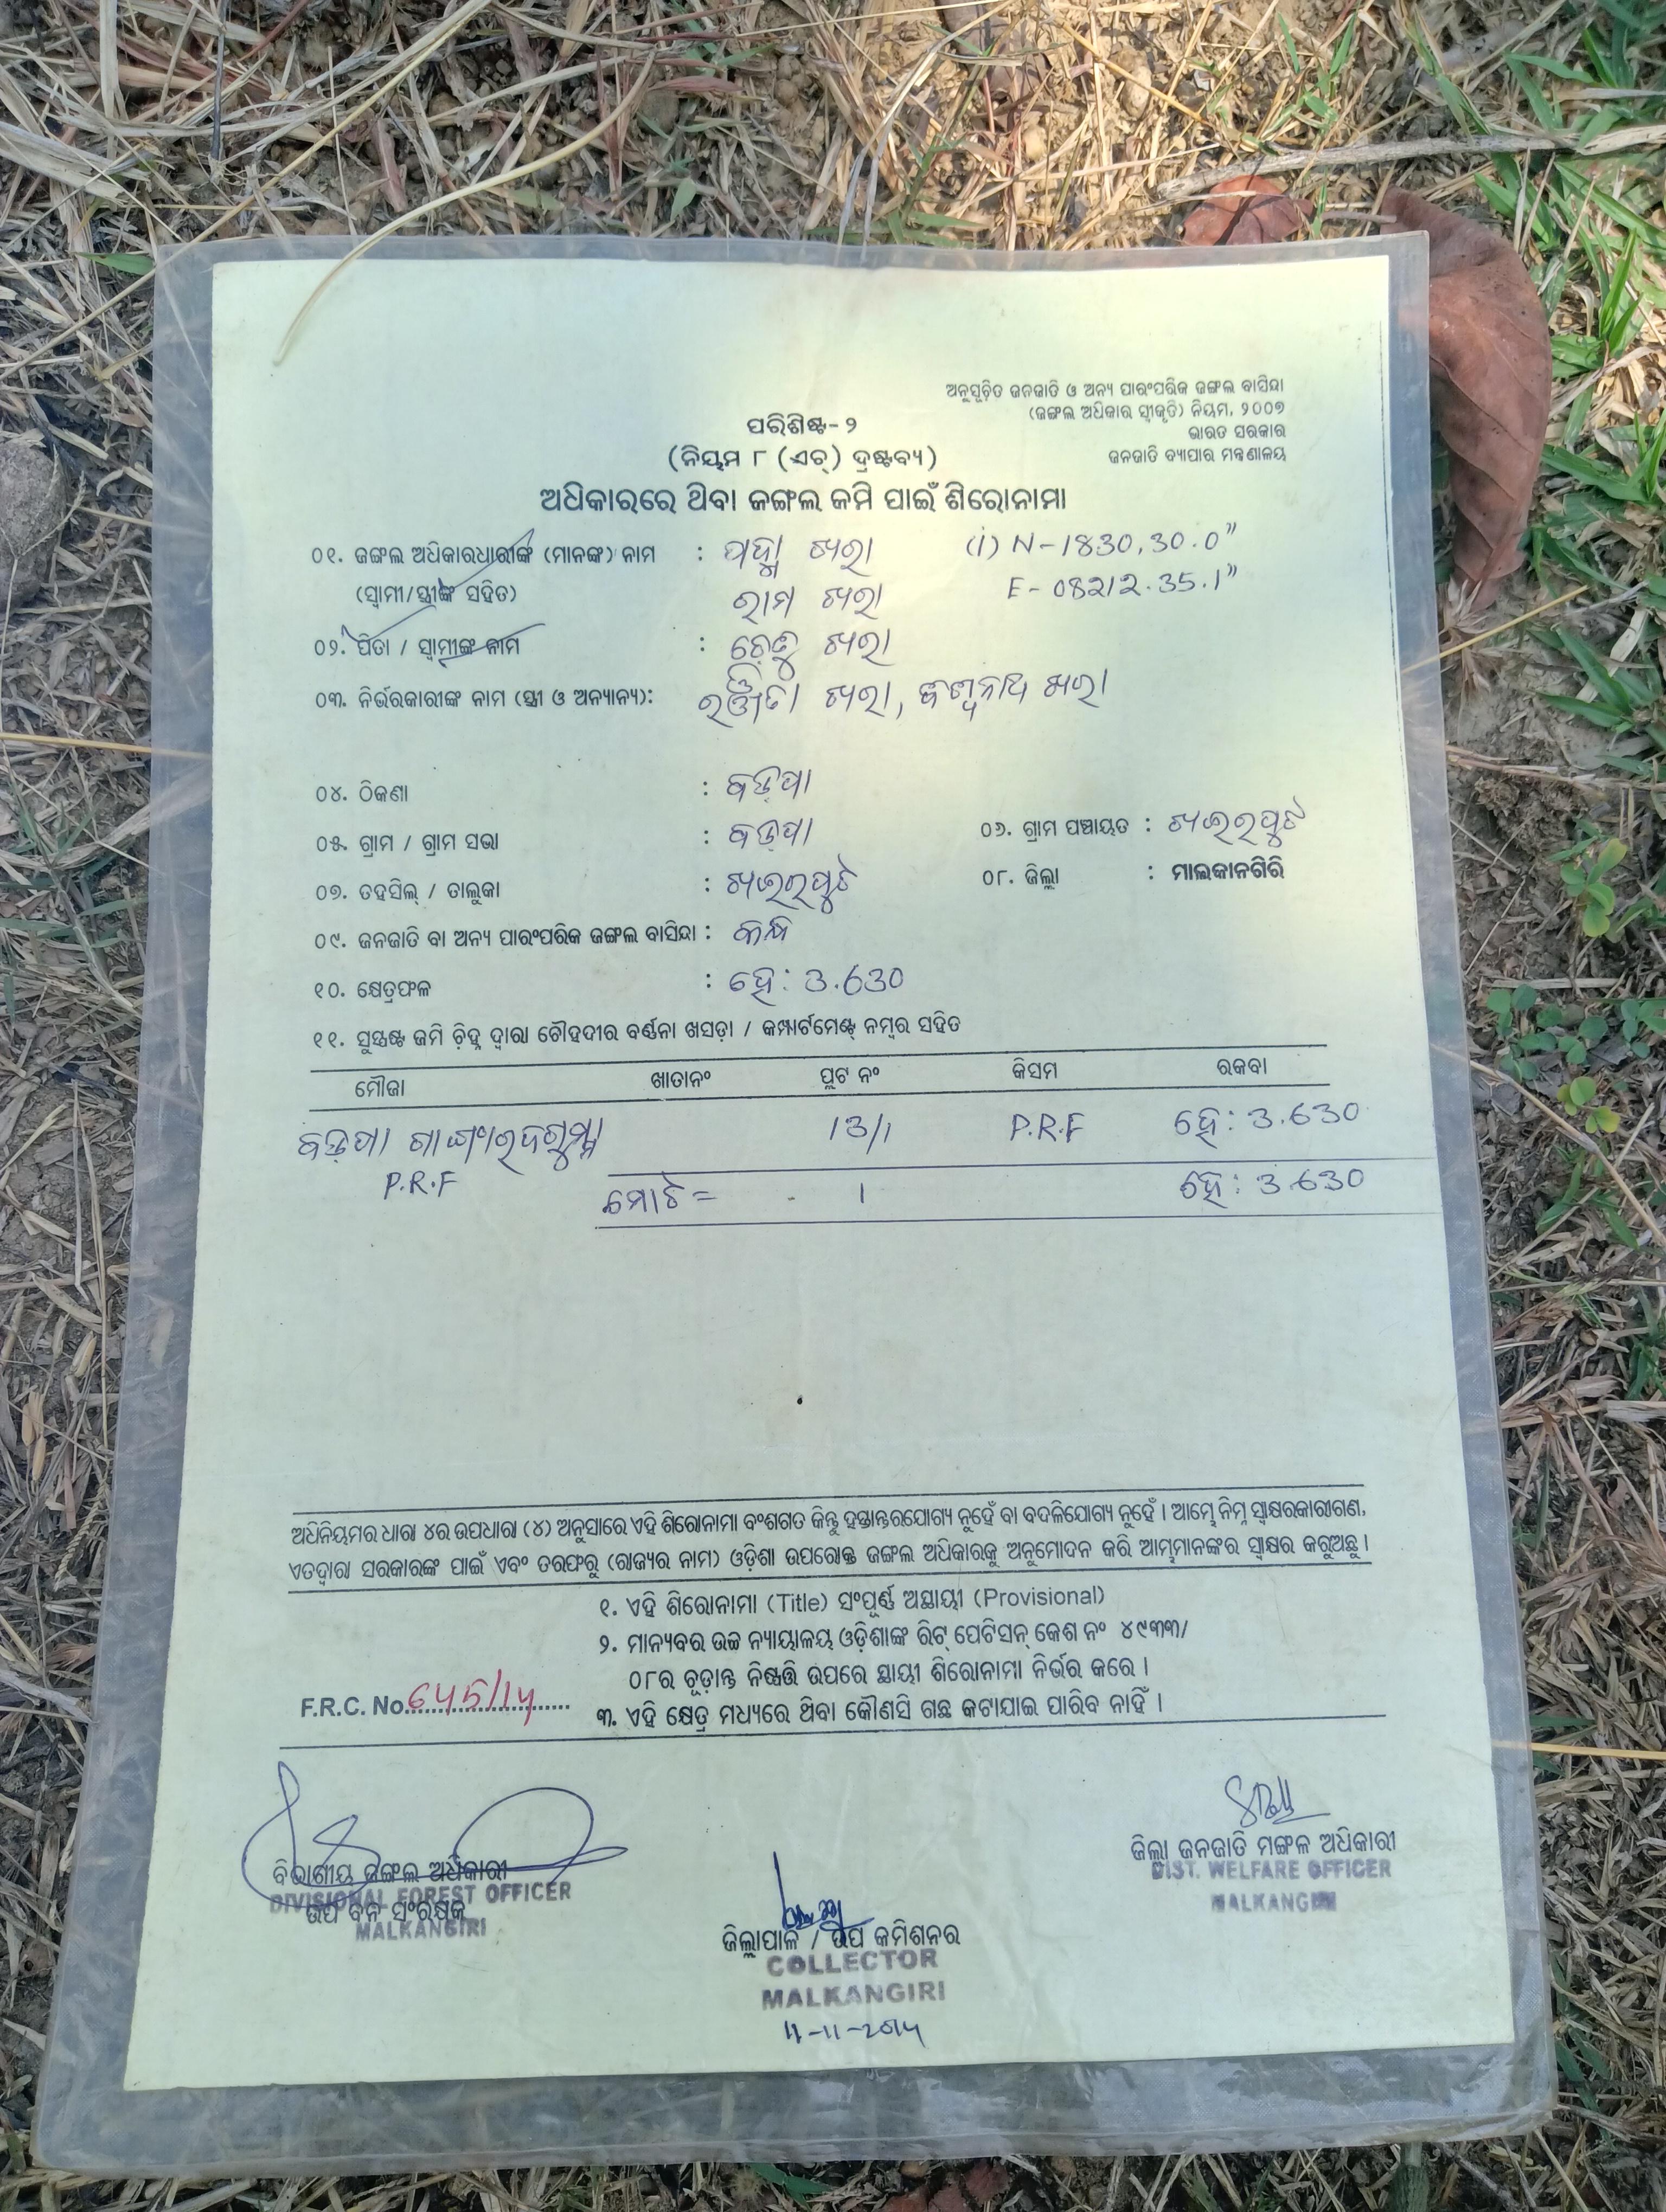 ଅନୁସୂଚିତ ଜନଜାତି ଓ ଅନ୍ୟ ପାରଂପରିକ ଜଙ୍ଗଲ ବାସିନ୍ଦା
(ଜଙ୍ଗଲ ଅଧିକାର ସ୍ୱୀକୃତି) ନିୟମ, ୨୦୦୭
ଭାରତ ସରକାର
ଜନଜାତି ବ୍ୟାପାର ମନ୍ତ୍ରଣାଳୟ
ପରିଶିଷ୍ଟ-୨
(ନିୟମ ୮ (ଏଚ୍) ଦ୍ରଷ୍ଟବ୍ୟ)
ଅଧିକାରରେ ଥିବା ଜଙ୍ଗଲ ଜମି ପାଇଁ ଶିରୋନାମା
୦୧. ଜଙ୍ଗଲ ଅଧିକାରଧାରୀଙ୍କ (ମାନଙ୍କ) ନାମ : ପଦ୍ମା ଖରା (i) N-1830,30.0"
(ସ୍ୱାମୀ/ସ୍ତ୍ରୀଙ୍କ ସହିତ) ରାମ ଖରା E-08212.35.1"
୦୨. ପିତା / ସ୍ୱାମୀଙ୍କ ନାମ : ଖରା
୦୩. ନିର୍ଭରକାରୀଙ୍କ ନାମ (ସ୍ତ୍ରୀ ଓ ଅନ୍ୟାନ୍ୟ): ଖରା, ଖରା
୦୪. ଠିକଣା : ବଡ଼ପା
୦୫. ଗ୍ରାମ / ଗ୍ରାମ ସଭା : ବଡ଼ପା ୦୬. ଗ୍ରାମ ପଞ୍ଚାୟତ : ଖଇରପୁଟ
୦୭. ତହସିଲ୍ / ତାଲୁକା : ଖଇରପୁଟ ୦୮. ଜିଲ୍ଲା : ମାଲକାନଗିରି
୦୯. ଜନଜାତି ବା ଅନ୍ୟ ପାରଂପରିକ ଜଙ୍ଗଲ ବାସିନ୍ଦା : କନ୍ଧ
୧୦. କ୍ଷେତ୍ରଫଳ : ହେ: 3.630
୧୧. ସୁସ୍ପଷ୍ଟ ଜମି ଚିହ୍ନ ଦ୍ୱାରା ଚୌହଦୀର ବର୍ଣ୍ଣନା ଖସଡ଼ା / କମ୍ପାର୍ଟମେଣ୍ଟ୍ ନମ୍ବର ସହିତ
ମୌଜା ଖାତାନଂ ପ୍ଲଟ ନଂ କିସମ ରକବା
ବଡ଼ପା 13/1 P.R.F ହେ: 3.630
P.R.F ମୋଟ = 1 ହେ: 3.630
ଅଧିନିୟମର ଧାରା ୪ର ଉପଧାରା (୪) ଅନୁସାରେ ଏହି ଶିରୋନାମା ବଂଶଗତ କିନ୍ତୁ ହସ୍ତାନ୍ତରଯୋଗ୍ୟ ନୁହେଁ ବା ବଦଳିଯୋଗ୍ୟ ନୁହେଁ । ଆମ୍ଭେ ନିମ୍ନ ସ୍ୱାକ୍ଷରକାରୀଗଣ,
ଏତଦ୍ୱାରା ସରକାରଙ୍କ ପାଇଁ ଏବଂ ତରଫରୁ (ରାଜ୍ୟର ନାମ) ଓଡ଼ିଶା ଉପରୋକ୍ତ ଜଙ୍ଗଲ ଅଧିକାରକୁ ଅନୁମୋଦନ କରି ଆମ୍ଭମାନଙ୍କର ସ୍ୱାକ୍ଷର କରୁଅଛୁ ।
୧. ଏହି ଶିରୋନାମା (Title) ସଂପୂର୍ଣ୍ଣ ଅସ୍ଥାୟୀ (Provisional)
୨. ମାନ୍ୟବର ଉଚ୍ଚ ନ୍ୟାୟାଳୟ ଓଡ଼ିଶାଙ୍କ ରିଟ୍ ପେଟିସନ୍ କେଶ ନଂ ୪୯୩୩/
୦୮ର ଚୂଡ଼ାନ୍ତ ନିଷ୍ପତ୍ତି ଉପରେ ସ୍ଥାୟୀ ଶିରୋନାମା ନିର୍ଭର କରେ ।
F.R.C. No. 645/14
୩. ଏହି କ୍ଷେତ୍ର ମଧ୍ୟରେ ଥିବା କୌଣସି ଗଛ କଟାଯାଇ ପାରିବ ନାହିଁ ।
ବିଭାଗୀୟ ଜଙ୍ଗଲ ଅଧିକାରୀ
DIVISIONAL FOREST OFFICER
ଉପ ବନ ସଂରକ୍ଷକ
MALKANGIRI
ଜିଲ୍ଲାପାଳ / ଉପ କମିଶନର
COLLECTOR
MALKANGIRI
11-11-2014
ଜିଲ୍ଲା ଜନଜାତି ମଙ୍ଗଳ ଅଧିକାରୀ
DIST. WELFARE OFFICER
MALKANGIRI